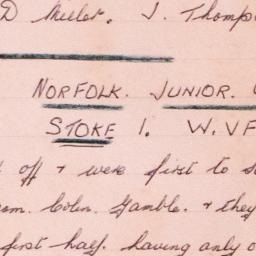 D Meller. J. Thomp
NORFOLK. JUNIOR.
STOKE 1. W.V F
off & were first to s
Colin. Gamble. & they
first half. having only o